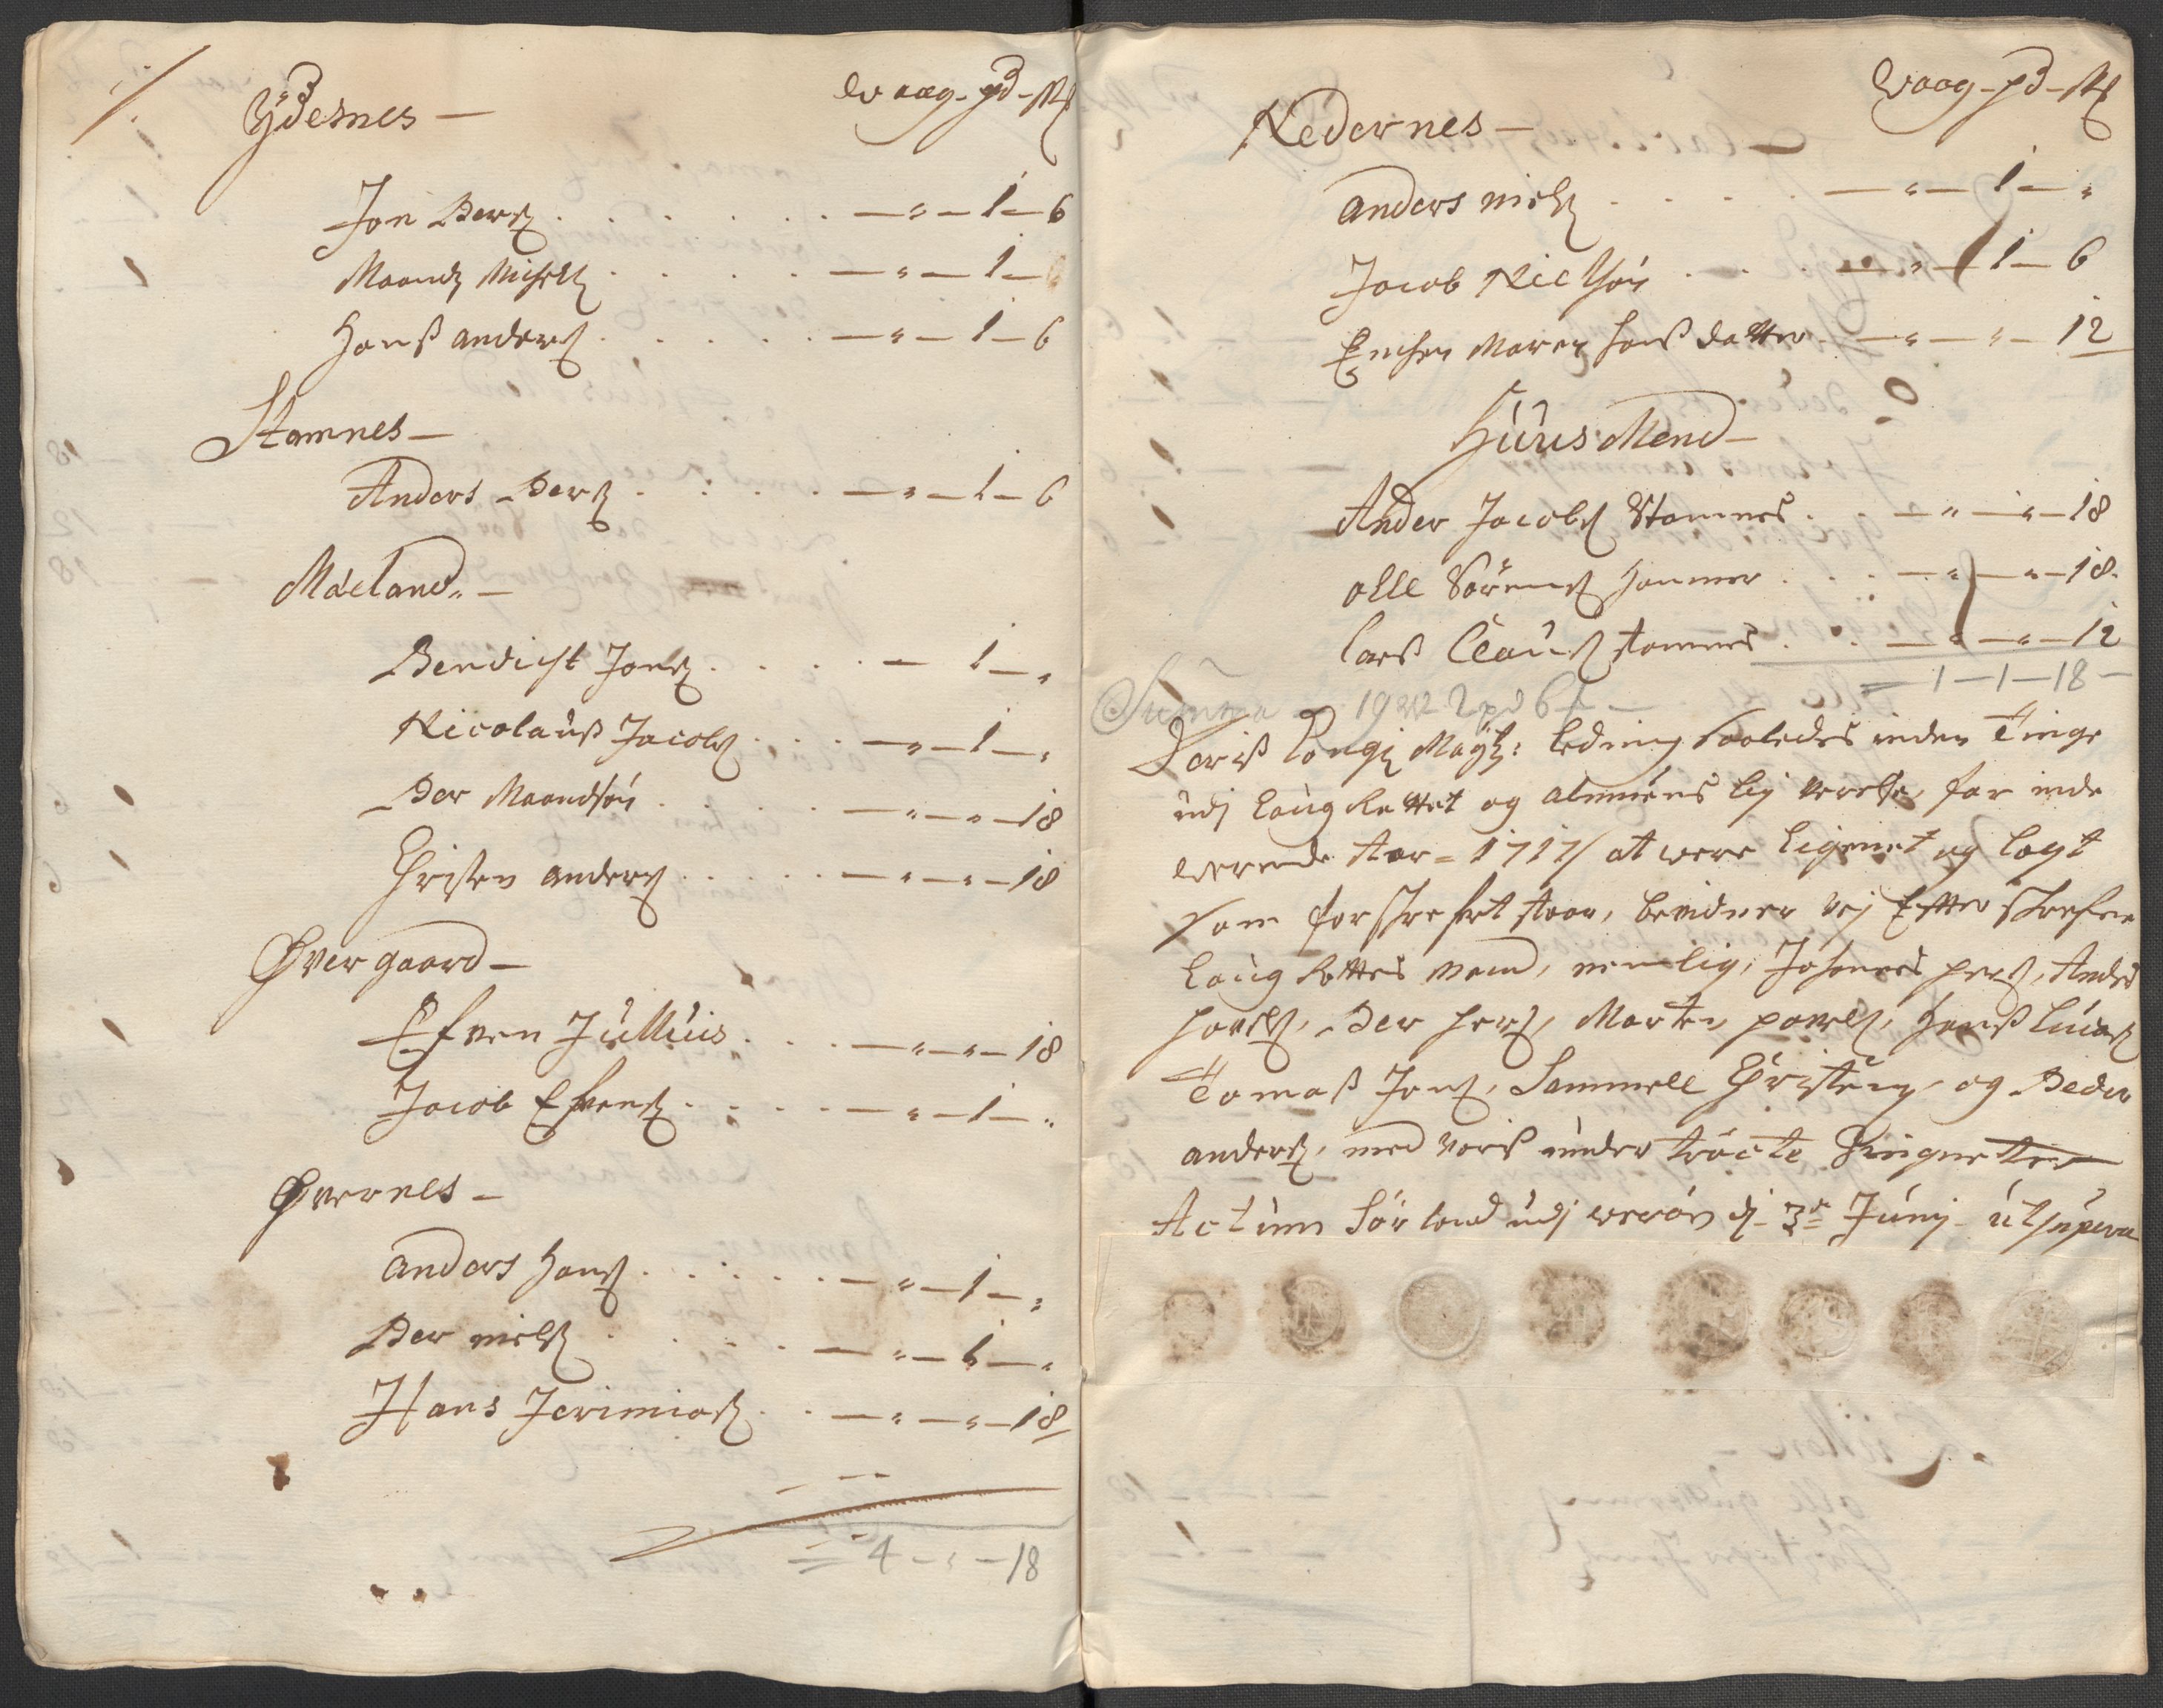 Ydesnes — Waag - pd - M
Jon Pers . . . — " — 1 — 6
Maands Michels . . . — " — 1 —
Hanß anders . . . — " — 1 — 6
Stamnes —
Anders Pers . . . — " — 1 — 6
Måeland —
Bendicht Jons . . . — 1 — "
Nicolauß Jacobs . . . — " — 1 — "
Per Maandsøn . . . — " — " — 18
Christen anders . . . — " — " — 18
Øvergaard —
Efven Jullius . . . — " — " — 18
Jacob Efvens . . . — " — 1 — "
Øvernes —
anders Hans . . . — " — 1 — "
Per niels . . . — " — 1 — "
Hans Jerimias . . — " — " — 18
4 — " — 18
Nedernes — Waag - pd - M
anders niels . . . — " — 1 — "
Jacob Nielsøn . . . — " — 1 — 6
Enchen Maren Hanß datter — " — " — 12
Huus Mend —
Ander Jacobs Stamnes . . — " — " — 18
olle Sørens Hammer . . . — " — " — 18
Larß Clauß stamnes . . — " — " — 12
— 1 — 1 — 18 —
Summa — 19 W 2 pd 6
Dariß Kongl Mayts: leding saaledes inden Tinge
udj Laug Rettet og alnuens lig verelse, for inde
werende Aar = 1717 / at were lignet og lagt
som forskrefvet staar, bevidner vej Efter skrefne
Laug Rettes mænd, nemlig, Johannes pers, Anders
povels, Per pers, Morten povels, Hanß Lucas
Tomaß Jons, Sammell Christens og Peder
anders, med vorß under tröcte Singneter
Actum Sørland udj werøen d. 3e Junij ut supera